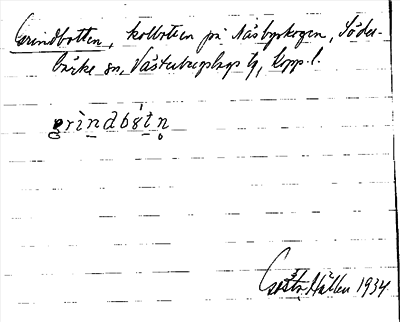 Grindbotten, kolbotten på Näsbyskogen, Söder-
bärke sn, Västerbergslags tg, Kopp. l.
grìndbòtn
Gösta Hällen 1934